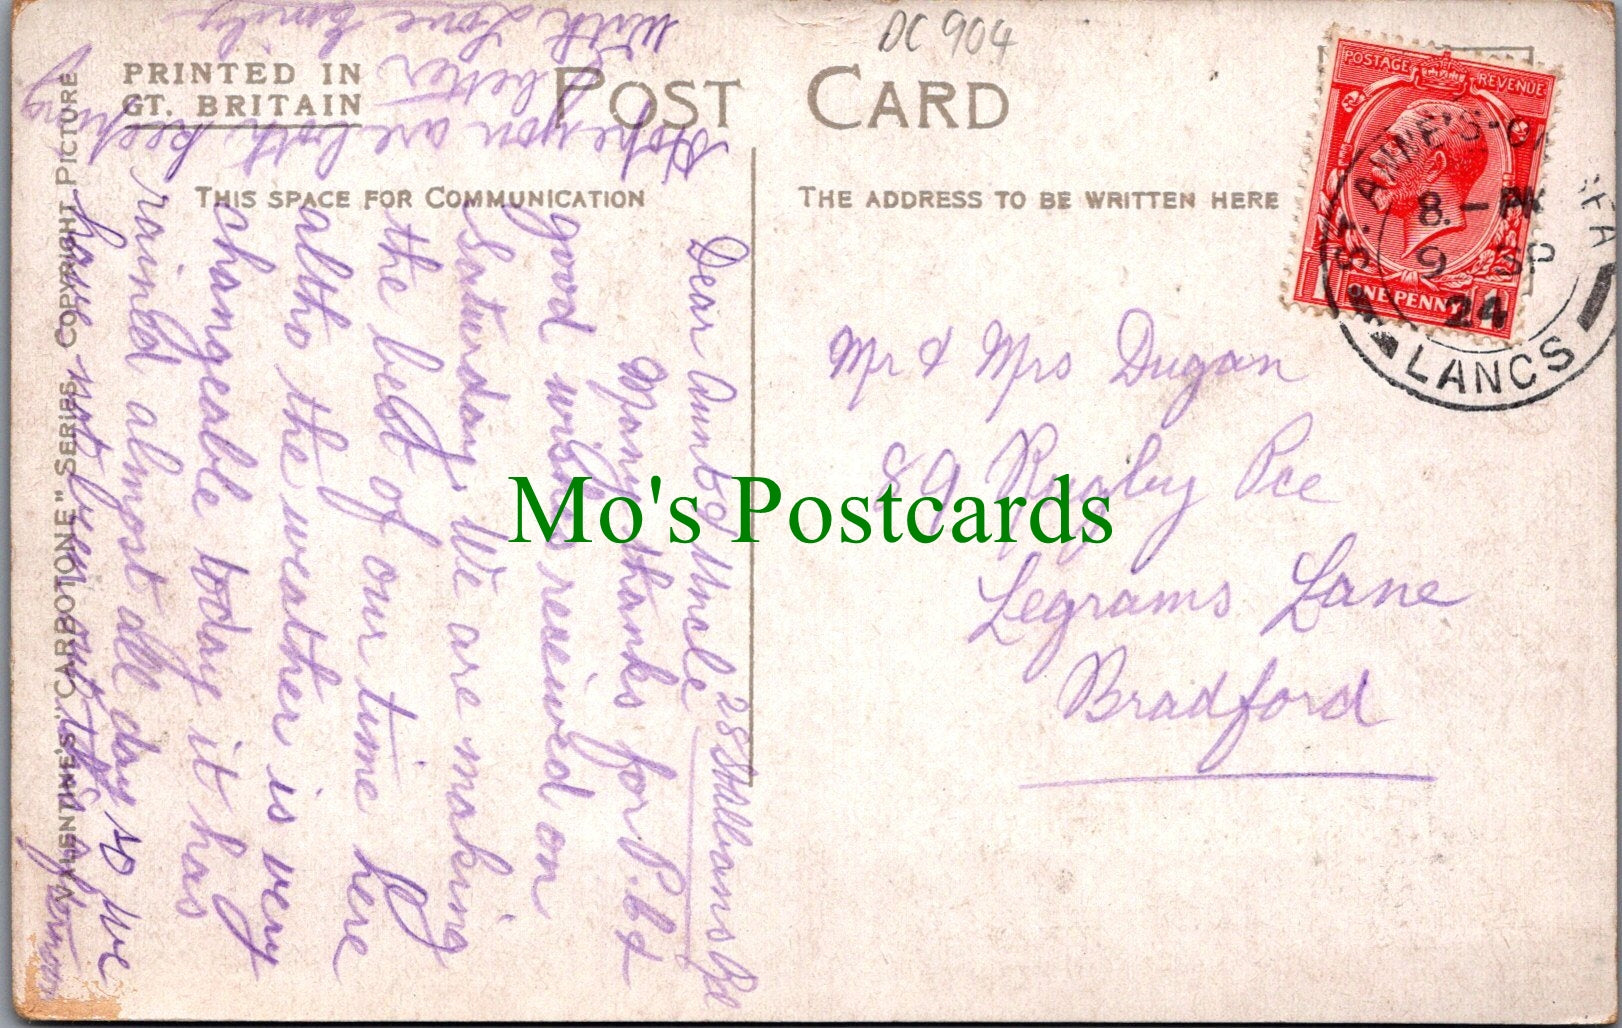 DC 904
PRINTED IN
GT. BRITAIN
POST CARD
THIS SPACE FOR COMMUNICATION
THE ADDRESS TO BE WRITTEN HERE
VALENTINE'S "CARBOTONE" SERIES. COPYRIGHT PICTURE
POSTAGE REVENUE
ONE PENNY 1
ST. ANNE'S-O
8.-PM
9 SP
24
LANCS
28 St Albans Rd
Dear Aunt & Uncle
Many thanks for P.C. &
good wishes received on
Saturday. We are making
the best of our time here
altho the weather is very
changeable today it has
rained almost all day so we
have not been out this afternoon
Hope you are both keeping
better
With Love Emily
Mr & Mrs Dugan
89 Rugby Pce
Legrams Lane
Bradford
Mo's Postcards